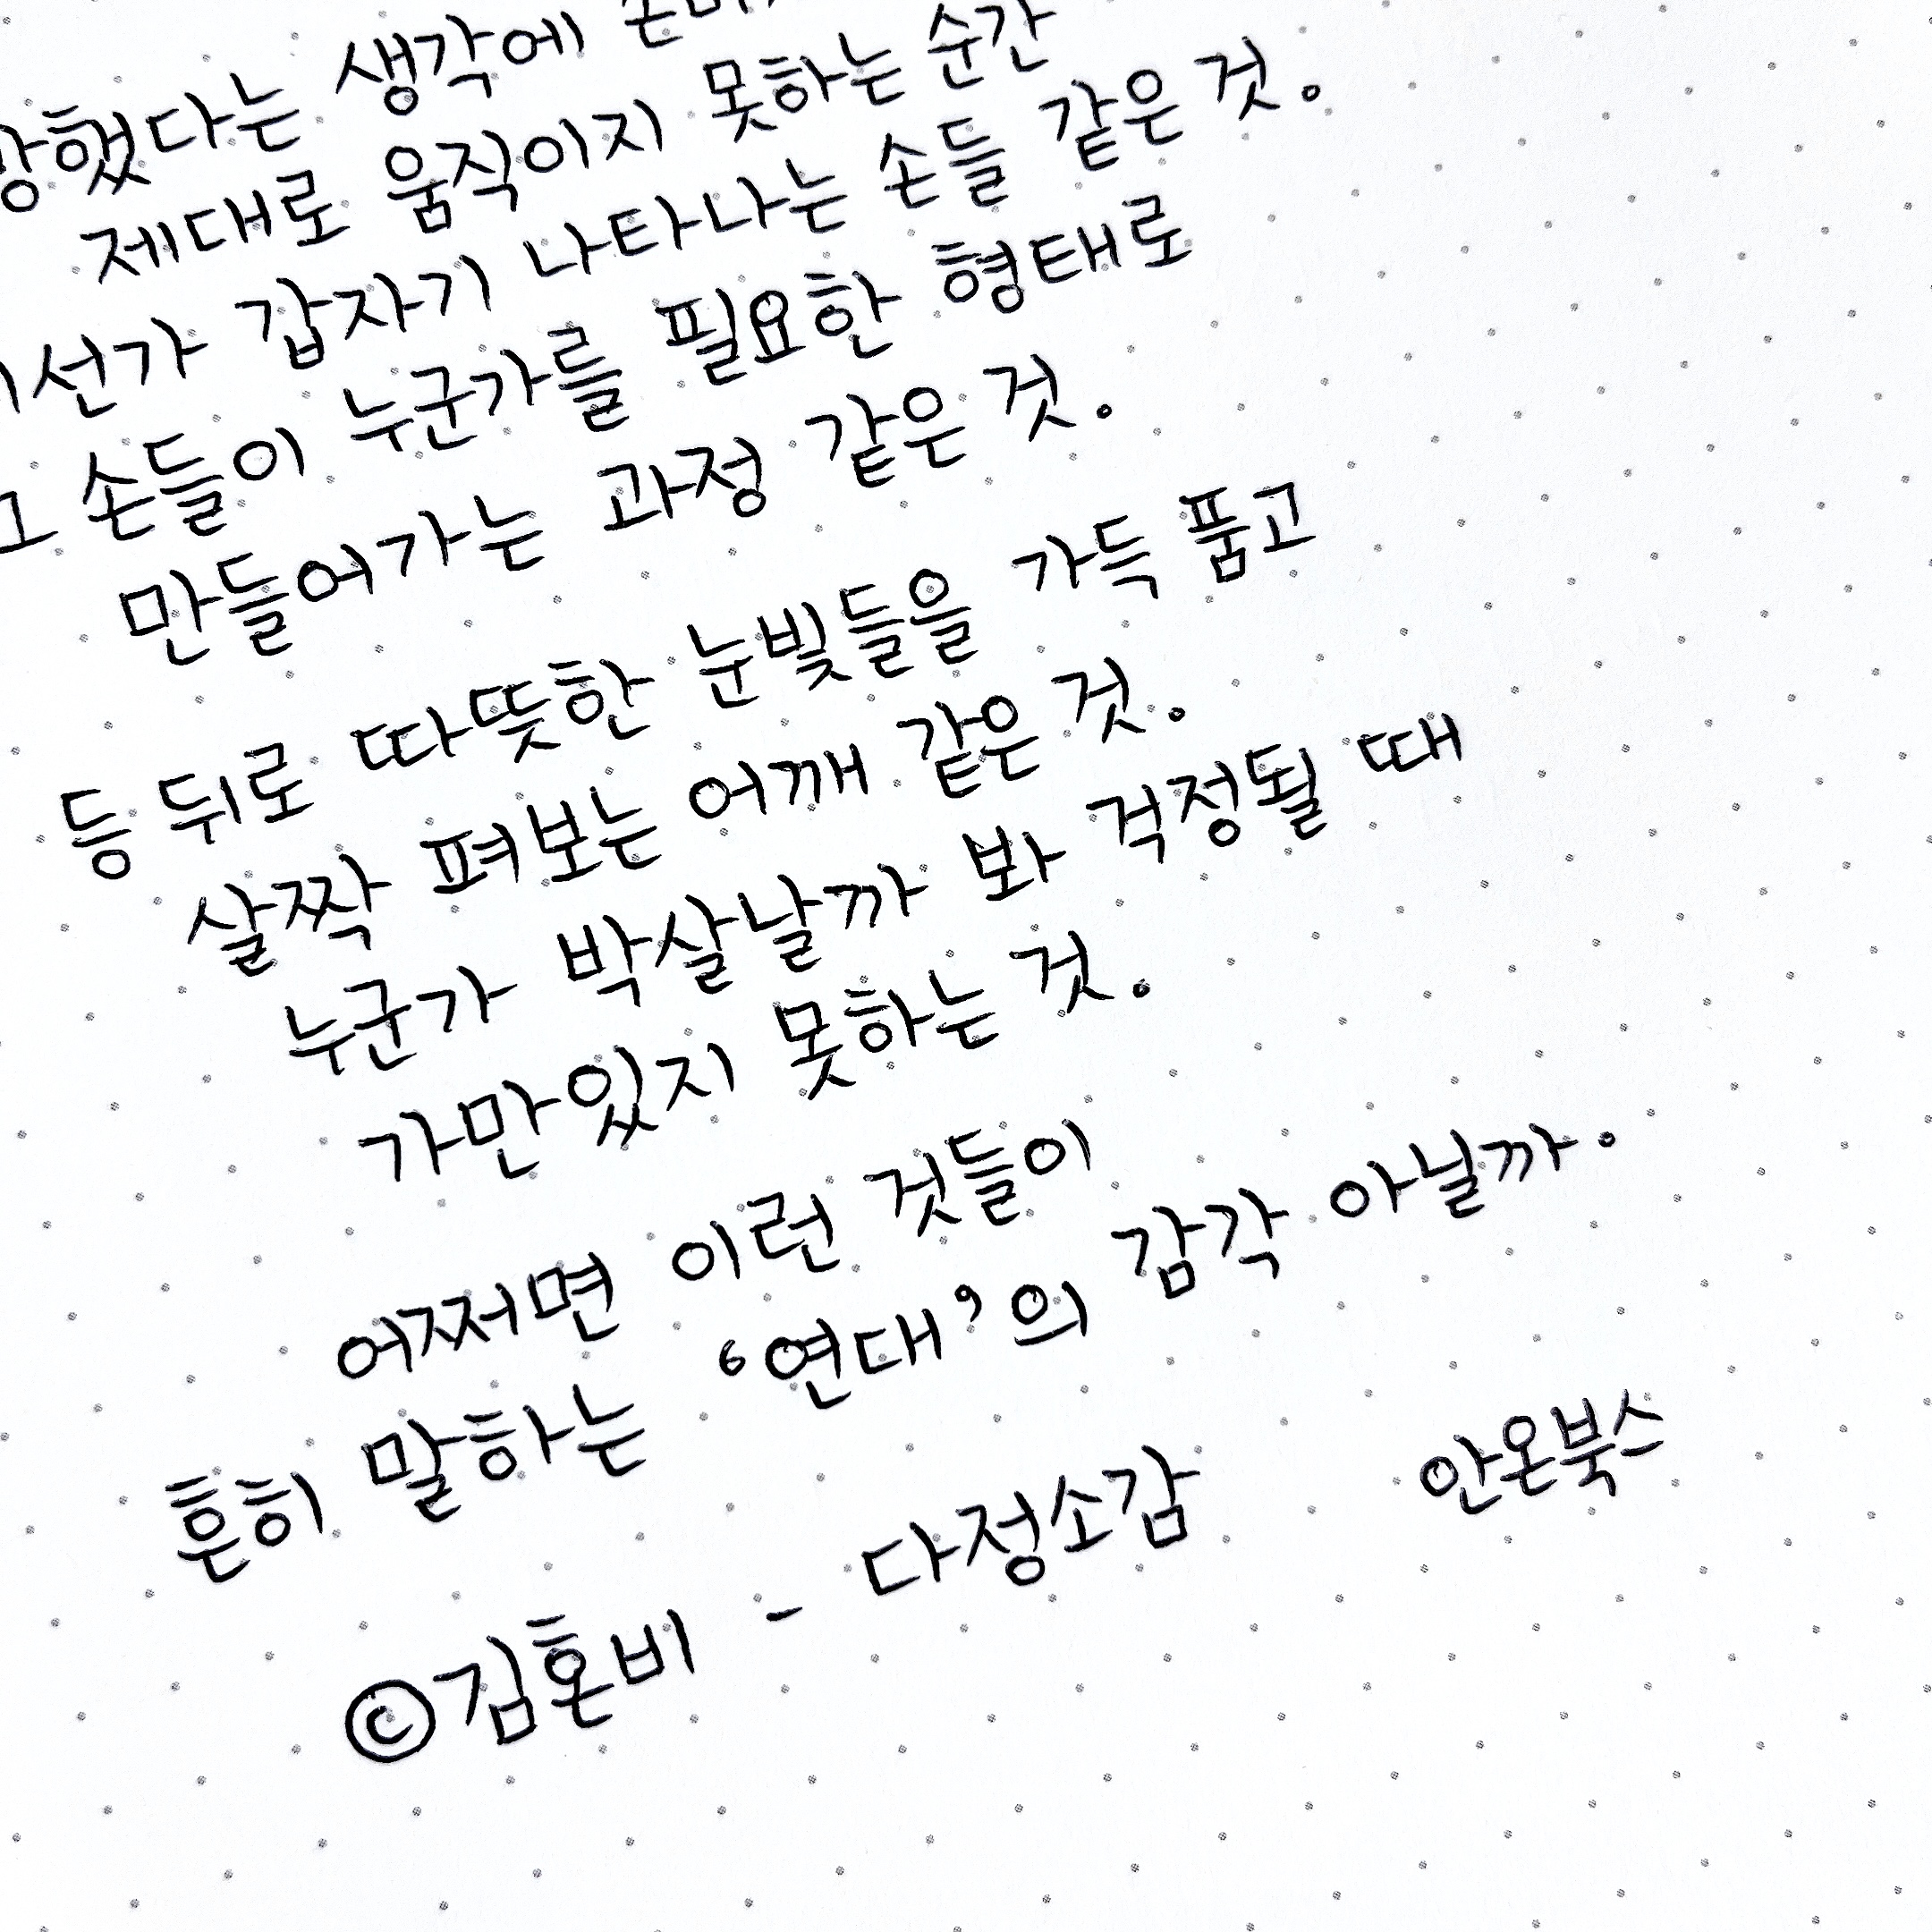 생각에
제대로 움직이지 못하는 순간
갑자기 나타나는 손들 같은 것.
손들이 누군가를 필요한 형태로
만들어가는 과정 같은 것.
등 뒤로 따뜻한 눈빛들을 가득 품고
살짝 펴보는 어깨 같은 것.
누군가 박살날까 봐 걱정될 때
가만있지 못하는 것.
어쩌면 이런 것들이
흔히 말하는 ‘연대’의 감각 아닐까.
©김혼비 - 다정소감 안온북스